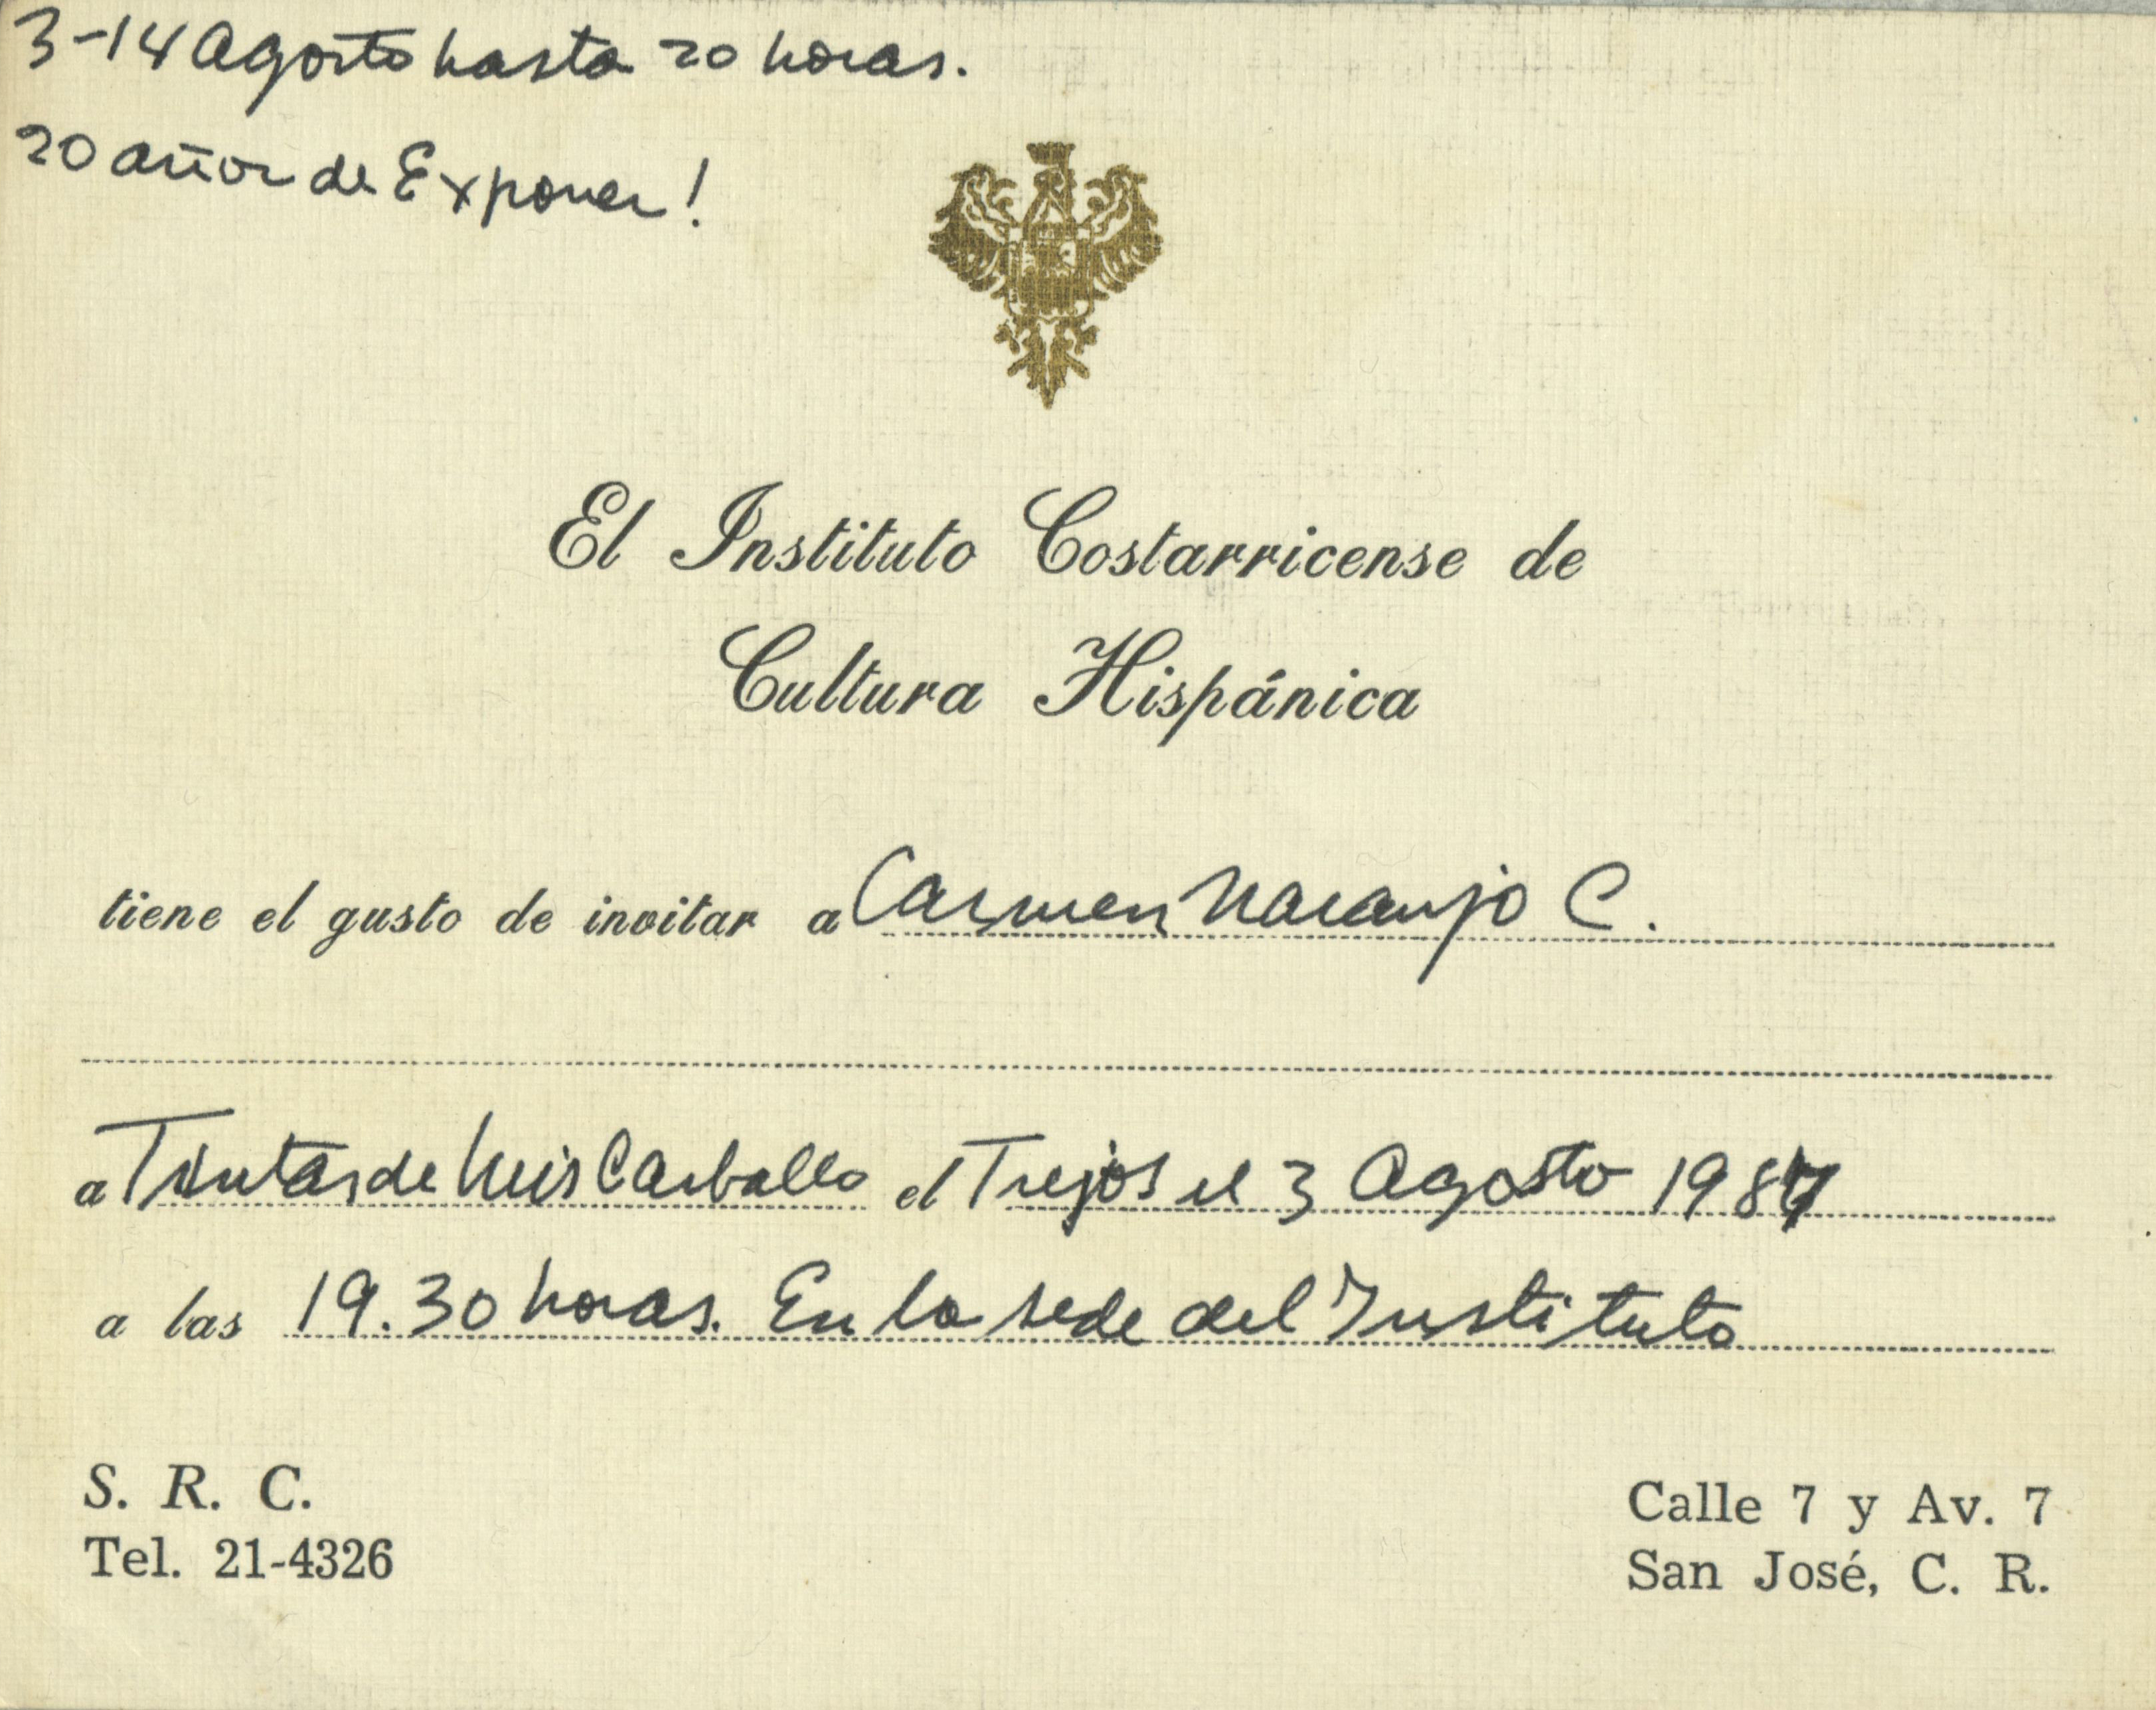 3-14 Agosto hasta 20 horas.
20 años de Exponer!
El Instituto Costarricense de
Cultura Hispánica
tiene el gusto de invitar a Carmen Naranjo C.
a Tintas de Luis Carballo el Trejos el 3 Agosto 1987
a las 19.30 horas. En la sede del Instituto
S. R. C.
Tel. 21-4326
Calle 7 y Av. 7
San José, C. R.